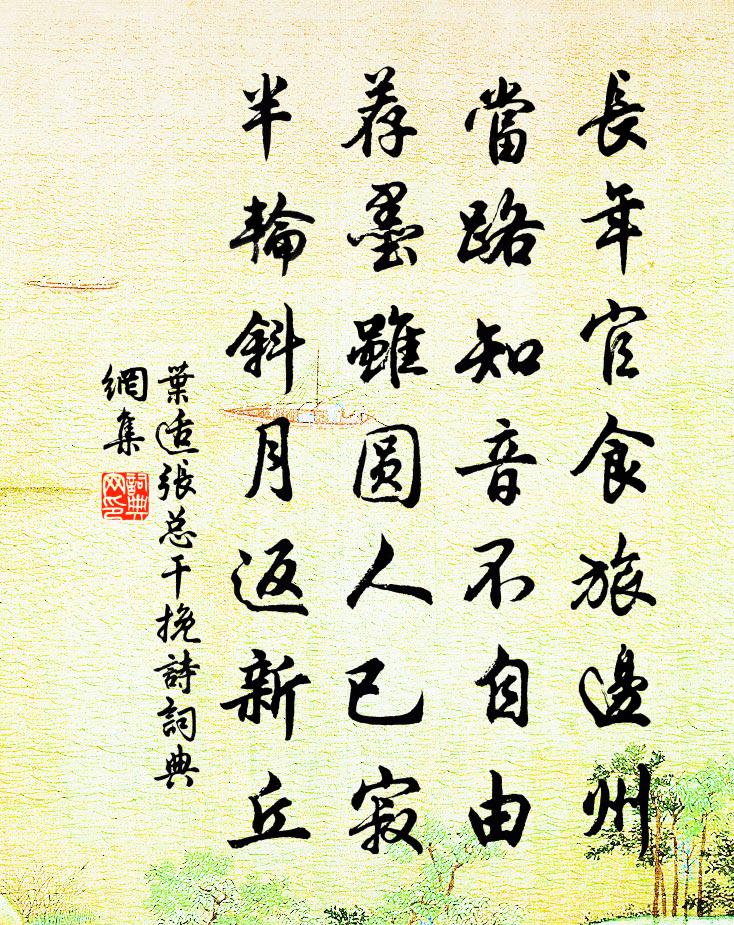 長年官食旅邊州
當路知音不自由
荐墨雖圓人已寂
半輪斜月返新丘
葉适張总干挽詩詞典
網集
詞典
网印